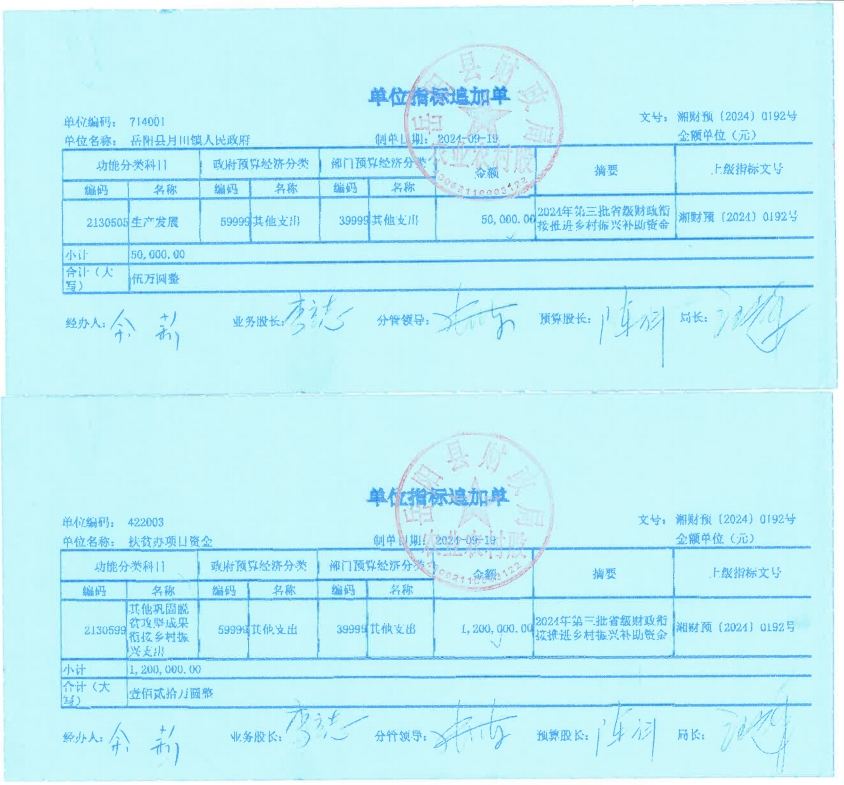 单位指标追加单
单位编码: 714001
文号: 湘财预〔2024〕0192号
单位名称: 岳阳县月田镇人民政府
制单日期: 2024-09-19
金额单位(元)
功能分类科目 政府预算经济分类 部门预算经济分类 金额 摘要 上级指标文号
编码 名称 编码 名称 编码 名称
2130505 生产发展 59999 其他支出 39999 其他支出 50,000.00 2024年第三批省级财政衔接推进乡村振兴补助资金 湘财预〔2024〕0192号
小计 50,000.00
合计(大写) 伍万圆整
经办人: 余莉 业务股长: 李志 分管领导: 预算股长: 陈科 局长:
岳阳县财政局
农业农村股
单位指标追加单
单位编码: 422003
文号: 湘财预〔2024〕0192号
单位名称: 扶贫办项目资金
制单日期: 2024-09-19
金额单位(元)
功能分类科目 政府预算经济分类 部门预算经济分类 金额 摘要 上级指标文号
编码 名称 编码 名称 编码 名称
2130599 其他巩固脱贫攻坚成果衔接乡村振兴支出 59999 其他支出 39999 其他支出 1,200,000.00 2024年第三批省级财政衔接推进乡村振兴补助资金 湘财预〔2024〕0192号
小计 1,200,000.00
合计(大写) 壹佰贰拾万圆整
经办人: 余莉 业务股长: 李志 分管领导: 预算股长: 陈科 局长:
岳阳县财政局
农业农村股